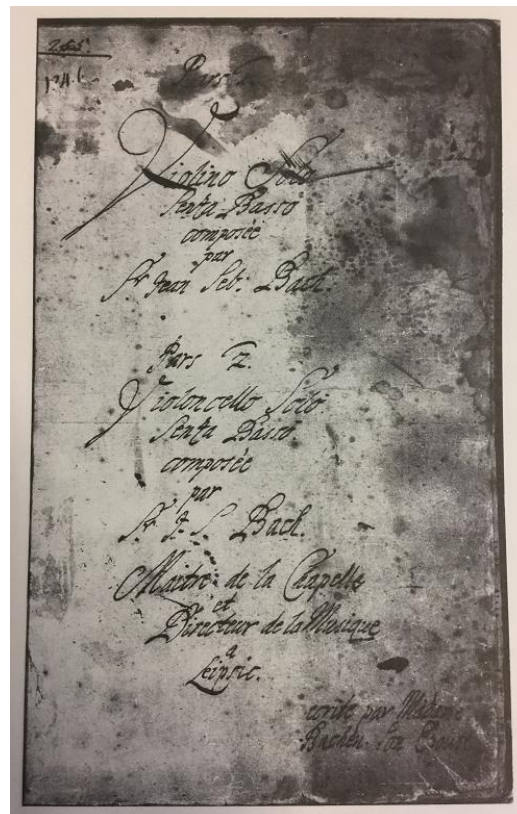 Pars 1.
Violino Solo
Senza Basso
composée
par
Sr. Jean Seb: Bach.
Pars 2.
Violoncello Solo
Senza Basso.
composée
par
Sr. J. S. Bach.
Maitre de la Chapelle
et
Directeur de la Musique
a
Leipsic.
ecrite par Madame
Bachen. Son Epouse